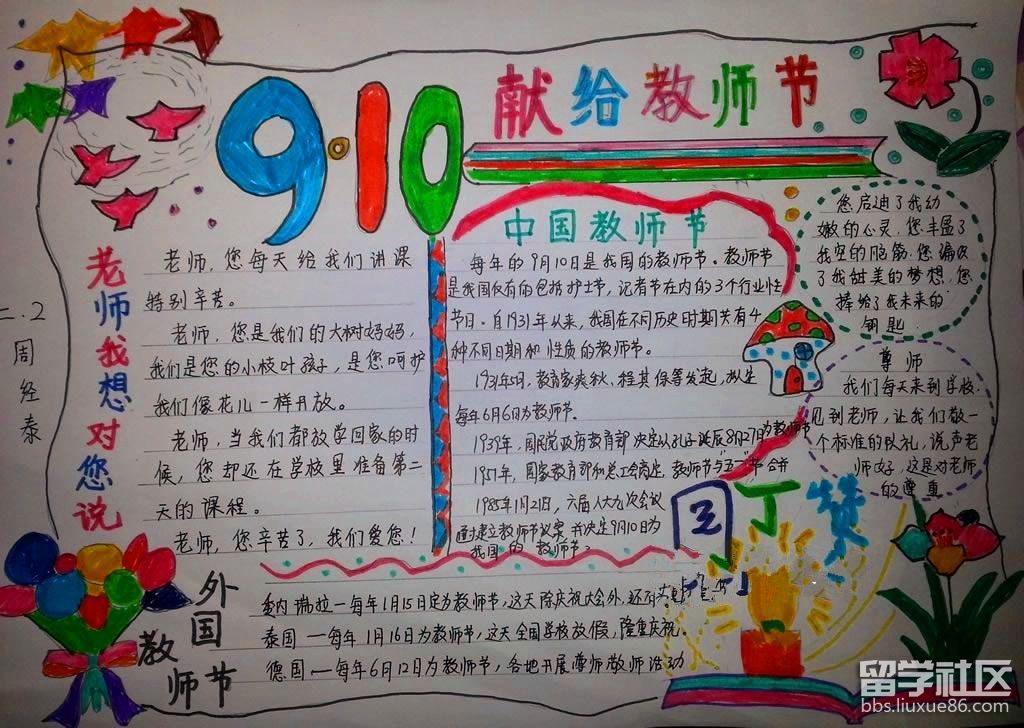 9·10
献给教师节
二.2
周经泰
老师我想对您说
老师,您每天给我们讲课
特别辛苦。
老师,您是我们的大树妈妈,
我们是您的小枝叶孩子,是您呵护
我们像花儿一样开放。
老师,当我们都放学回家的时
候,您却还在学校里准备第二
天的课程。
老师,您辛苦了,我们爱您!
中国教师节
每年的9月10日是我国的教师节。教师节
是我国仅有的包括护士节,记者节在内的3个行业性
节日。自1931年以来,我国在不同历史时期共有4
种不同日期和性质的教师节。
1931年5月,教育家爽秋、程其保等发起,拟定
每年6月6日为教师节。
1939年,国民党政府教育部决定以孔子诞辰8月27日为教师节
1951年,国家教育部和总工会商定,教师节与五一节合并
1985年1月21日,六届人大九次会议
通过建立教师节议案,并决定9月10日为
我国的教师节。
您启迪了我幼
嫩的心灵,您丰盈了
我空的脑篇,您
了我甜美的梦想,您
择给了我未来的
钥匙.
尊师
我们每天来到学校,
见到老师,让我们敬一
个标准的队礼,说声老
师好,这是对老师
的尊重
园丁赞
外国教师节
委内瑞拉一每年1月15日定为教师节,这天除庆祝大会外,还有
泰国一每年1月16日为教师节,这天全国学校放假,隆重庆祝.
德国一每年6月12日为教师节,各地开展尊师教师活动
留学社区
bbs.liuxue86.com